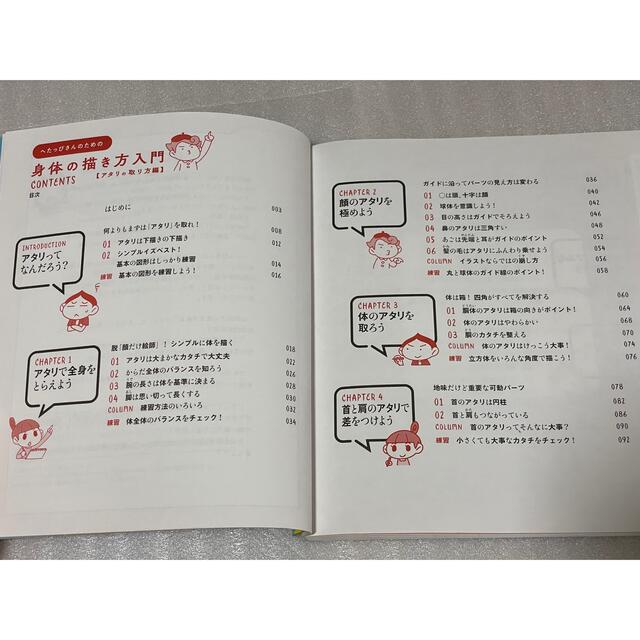 へたっぴさんのための
身体の描き方入門
CONTENTS 【アタリの取り方編】
目次
はじめに 003
INTRODUCTION
アタリって
なんだろう?
何よりもまずは「アタリ」を取れ! 008
01 アタリは下描きの下描き 012
02 シンプルイズベスト! 014
基本の図形はしっかり練習
練習 基本の図形を練習しよう! 016
CHAPTER 1
アタリで全身を
とらえよう
脱「顔だけ絵師」! シンプルに体を描く 018
01 アタリは大まかなカタチで大丈夫 022
02 からだ全体のバランスを知ろう 026
03 腕の長さは体を基準に決まる 028
04 脚は思い切って長くする 030
COLUMN 練習方法のいろいろ 032
練習 体全体のバランスをチェック! 034
CHAPTER 2
顔のアタリを
極めよう
ガイドに沿ってパーツの見え方は変わる 036
01 ○は頭、十字は顔 040
02 球体を意識しよう! 042
03 目の高さはガイドでそろえよう 046
04 鼻のアタリは三角すい 048
05 あごは先端と耳がガイドのポイント 052
06 髪の毛はアタリにふんわり乗せよう 054
COLUMN イラストならではの崩し方 056
練習 丸と球体のガイド線のポイント! 058
CHAPTER 3
体のアタリを
取ろう
体は箱! 四角がすべてを解決する 060
01 胴体のアタリは箱の向きがポイント! 064
02 体のアタリはやわらかい 068
03 胴のカタチを整える 070
COLUMN 体のアタリはけっこう大事! 074
練習 立方体をいろんな角度で描こう! 076
CHAPTER 4
首と肩のアタリで
差をつけよう
地味だけど重要な可動パーツ 078
01 首のアタリは円柱 082
02 首と肩もつながっている 086
COLUMN 首のアタリってそんなに大事? 090
練習 小さくても大事なカタチをチェック! 092